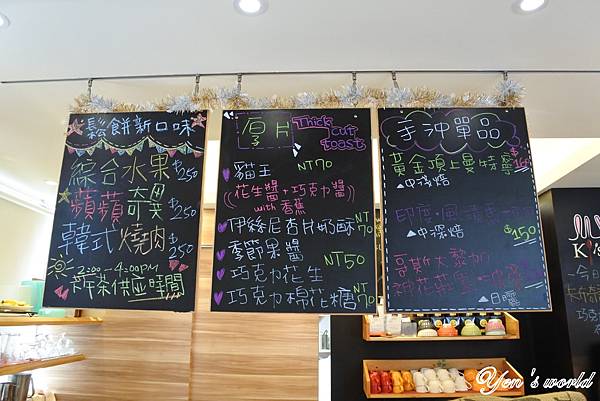 鬆餅新口味
綜合水果 $250
蘋蘋 可芙 $250
韓式燒肉 $250
2:00-4:00PM
下午茶供應時間
厚片 Thick cut toast
貓王 NT70
(花生醬+巧克力醬)
with 香蕉
伊絲尼杏片奶酥 NT70
季節果醬 NT50
巧克力花生
巧克力棉花糖 NT70
手沖單品
黃金頂上曼特寧
▲中深焙
印度
▲中深焙 $150
哥斯大黎加
▲日曬
K
Yen's world